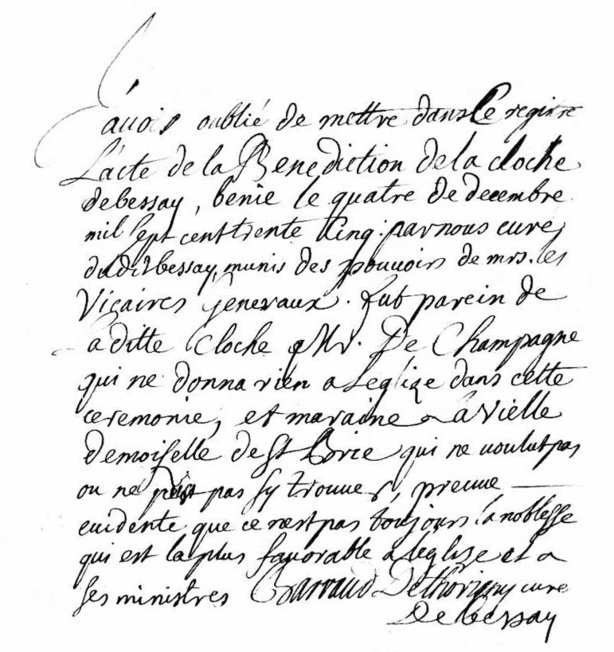 J'avois oublié de mettre dans le registre
L'acte de la Benediction de la cloche
de bessay, benie le quatre de decembre
mil sept cent trente cinq. par nous curé
du dit bessay, munis des pouvoirs de mrs. les
Vicaires Generaux. fut parein de
la ditte cloche Mr. De Champagne
qui ne donna rien a Leglize dans cette
ceremonie, et maraine La vielle
demoiselle de St qui ne voulut pas
ou ne pas sy trouver, preuve
evidente que ce nest pas toujours la noblesse
qui est la plus favorable a leglise et a
ses ministres curé
De bessay